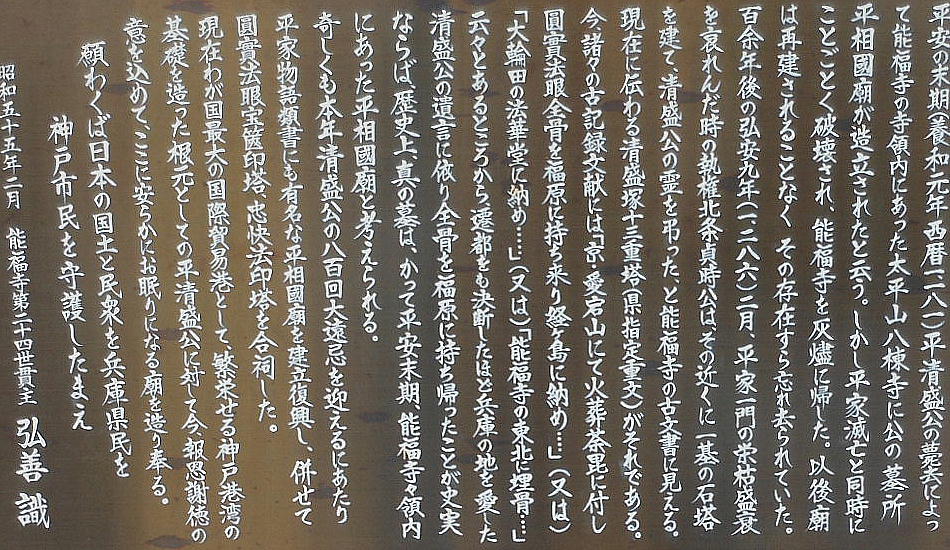 平安の末期(養和元年西暦一一八一)平清盛公の薨去によっ
て能福寺の寺領内にあった太平山八棟寺に公の墓所
平相國廟が造立されたと云う。しかし平家滅亡と同時に
ことごとく破壊され、能福寺を灰燼に帰した。以後廟
は再建されることなく その存在すら忘れ去られていた。
百余年後の弘安九年(一二八六)二月、平家一門の栄枯盛衰
を哀れんだ時の執権北条貞時公は、その近くに一基の石塔
を建て清盛公の霊を弔った、と能福寺の古文書に見える。
現在に伝わる清盛塚十三重塔(県指定重文)がそれである。
今諸々の古記録文献には「京、愛宕山にて火葬荼毘に付し
圓實法眼全骨を福原に持ち来り経ヶ島に納め…」(又は)
「大輪田の法華堂に納め……」(又は)「能福寺の東北に埋骨…」
云々とあるところから遷都をも決断したほど兵庫の地を愛した
清盛公の遺言に依り全骨を福原に持ち帰ったことが史実
ならば、歴史上、真の墓は、かって平安末期 能福寺々領内
にあった平相國廟と考えられる。
奇しくも本年清盛公の八百回大遠忌を迎えるにあたり
平家物語類書にも有名な平相國廟を建立復興し、併せて
圓實法眼宝篋印塔、忠快法印塔を合祠した。
現在わが国最大の国際貿易港として、繁栄せる神戸港湾の
基礎を造った根元としての平清盛公に対して今報恩謝徳の
意を込めて、ここに安らかにお眠りになる廟を造り奉る。
願わくば日本の国土と民衆を兵庫県民を
神戸市民を守護したまえ
昭和五十五年二月 能福寺第二十四世貫主 弘善識